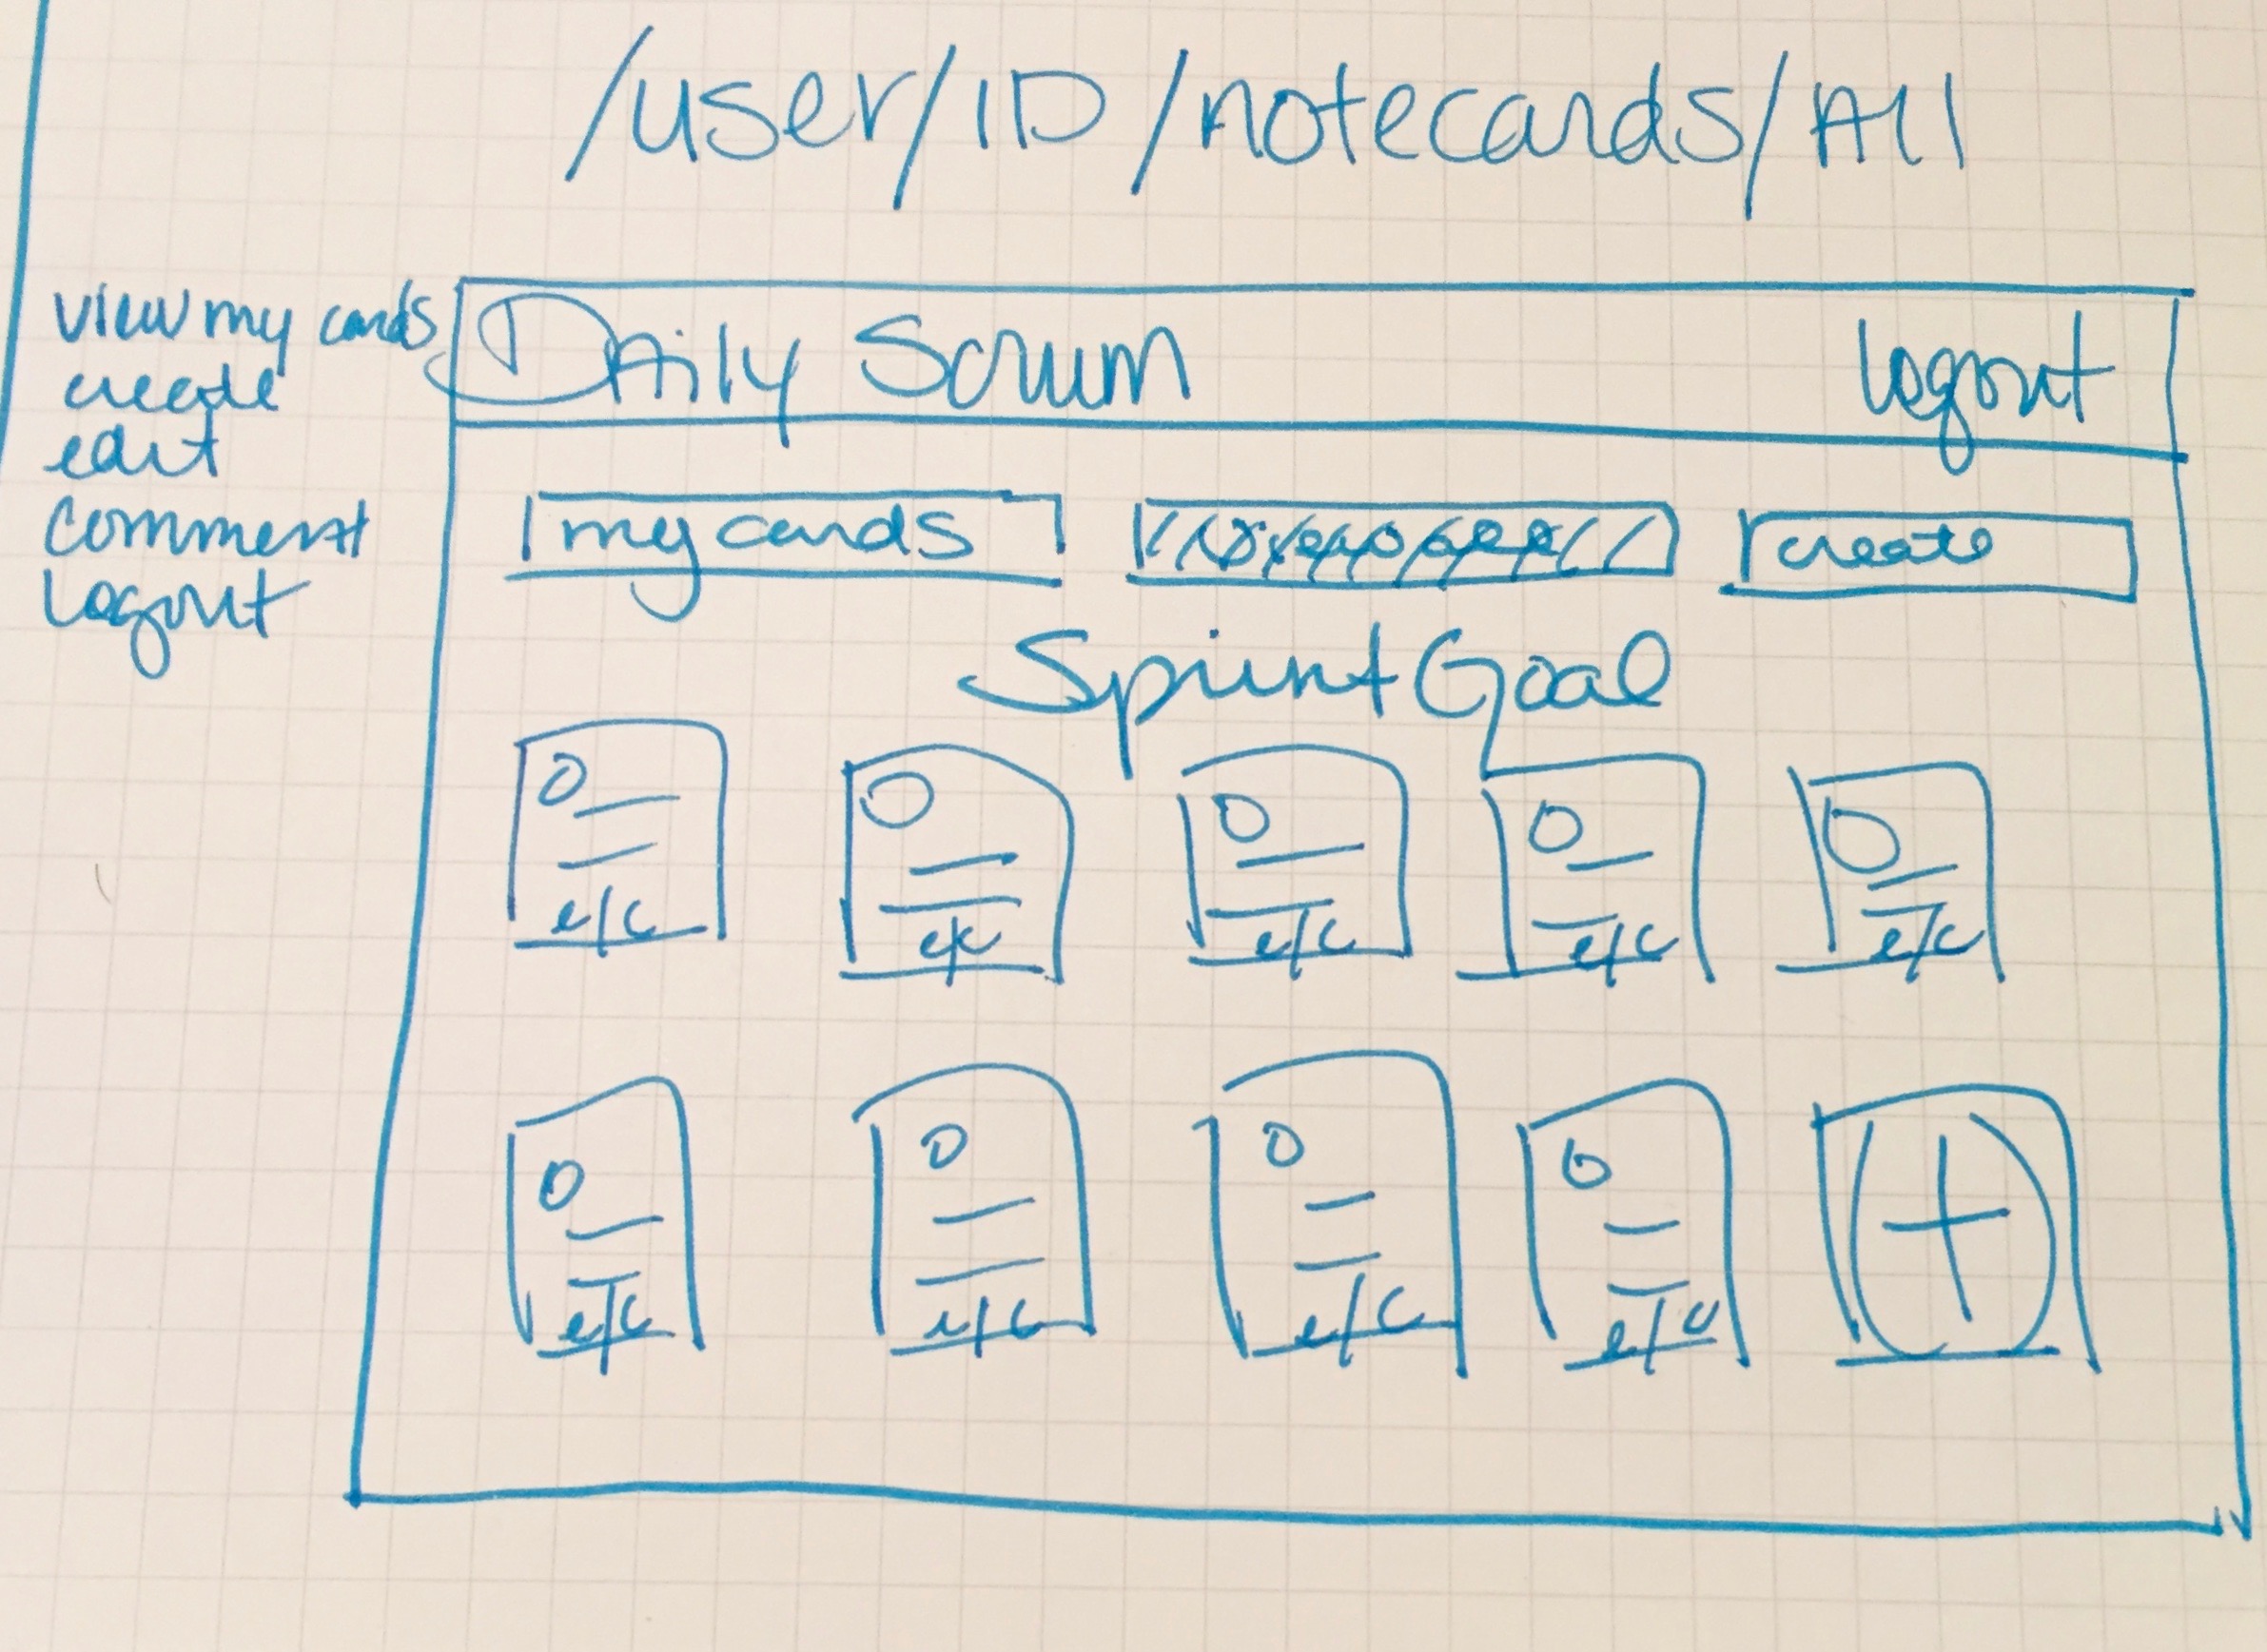 /user/ID/notecards/All
view my cards
create
edit
comment
logout
Daily Scrum
logout
my cards
create
Sprint Goal
e/c
e/c
e/c
e/c
e/c
e/c
e/c
e/c
e/c
+